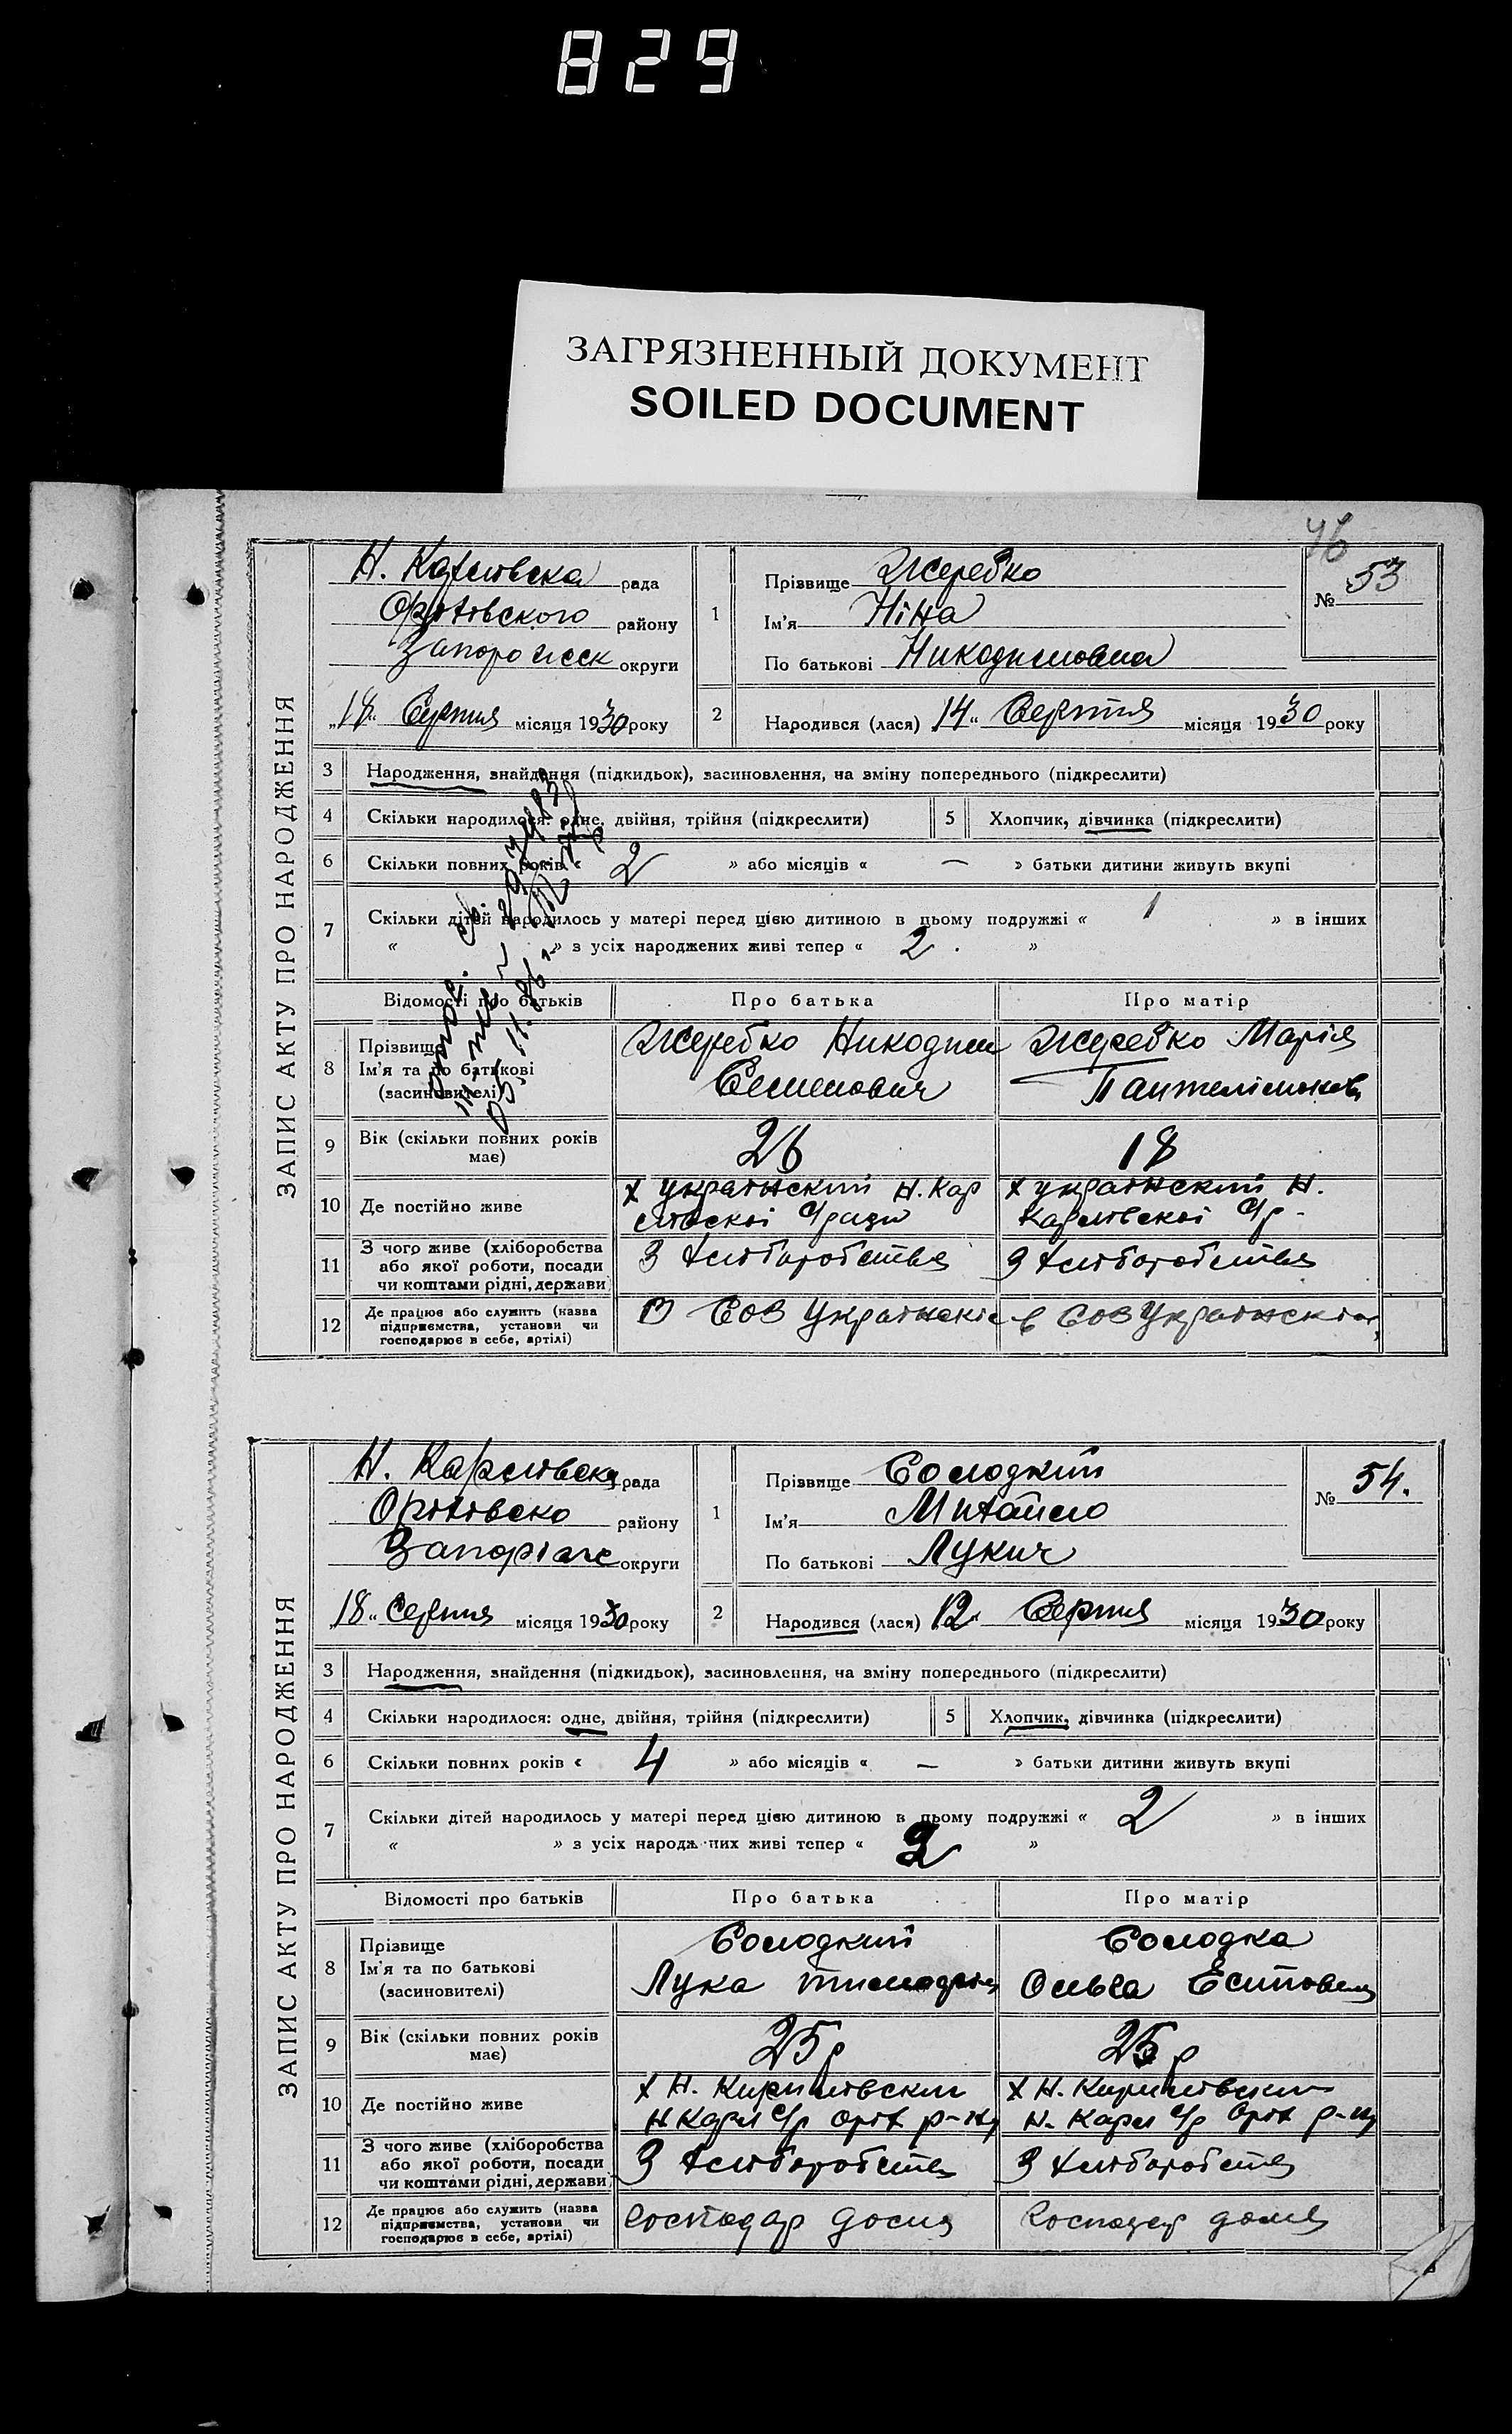 829
ЗАГРЯЗНЕННЫЙ ДОКУМЕНТ
SOILED DOCUMENT
46
ЗАПИС АКТУ ПРО НАРОДЖЕННЯ
Н. Карлівська рада
Оріхівського району
Запорожск округи
„18„ Серпня місяця 1930 року
1
Прізвище Жеребко
Ім'я Ніна
По батькові Никодимовна
№ 53
2 Народився (лася) 14„ Серпня місяця 1930 року
3 Народження, знайдення (підкидьок), засиновлення, на зміну попереднього (підкреслити)
4 Скільки народилося: одне, двійня, трійня (підкреслити) 5 Хлопчик, дівчинка (підкреслити)
6 Скільки повних років « 2 » або місяців « — » батьки дитини живуть вкупі
7 Скільки дітей народилось у матері перед цією дитиною в цьому подружжі « 1 » в інших
« » з усіх народжених живі тепер « 2 . »
Відомості про батьків Про батька Про матір
8 Прізвище
Ім'я та по батькові
(засиновителі)
Жеребко Никодим
Семенович
Жеребко Марія
9 Вік (скільки повних років має) 26 18
10 Де постійно живе
х Український Н. Кар
лівської С/ради
х Український Н.
Карлівскої С/р -
11 З чого живе (хліборобства
або якої роботи, посади
чи коштами рідні, держави
З хліборобства З хліборобства
12 Де працює або служить (назва
підприємства, установи чи
господарює в себе, артілі)
В Соз в Соз
ЗАПИС АКТУ ПРО НАРОДЖЕННЯ
Н. Карлівська рада
Оріхівско району
Запоріже округи
„18„ Серпня місяця 1930 року
1
Прізвище Солодкий
Ім'я Михайло
По батькові Лукич
№ 54.
2 Народився (лася) 12„ Серпня місяця 1930 року
3 Народження, знайдення (підкидьок), засиновлення, на зміну попереднього (підкреслити)
4 Скільки народилося: одне, двійня, трійня (підкреслити) 5 Хлопчик, дівчинка (підкреслити)
6 Скільки повних років « 4 » або місяців « — » батьки дитини живуть вкупі
7 Скільки дітей народилось у матері перед цією дитиною в цьому подружжі « 2 » в інших
« » з усіх народжених живі тепер « »
Відомості про батьків Про батька Про матір
8 Прізвище
Ім'я та по батькові
(засиновителі)
Солодкий
Лука
Солодка
Ольга
9 Вік (скільки повних років має) 25 р 25 р
10 Де постійно живе
х Н. Кирилівский
Н Карл С/р Оріх р-ну
х Н. Кирилівский
Н. Карл С/р Оріх р-ну
11 З чого живе (хліборобства
або якої роботи, посади
чи коштами рідні, держави
З хліборобства З хліборобства
12 Де працює або служить (назва
підприємства, установи чи
господарює в себе, артілі)
Господар дома Господар дома